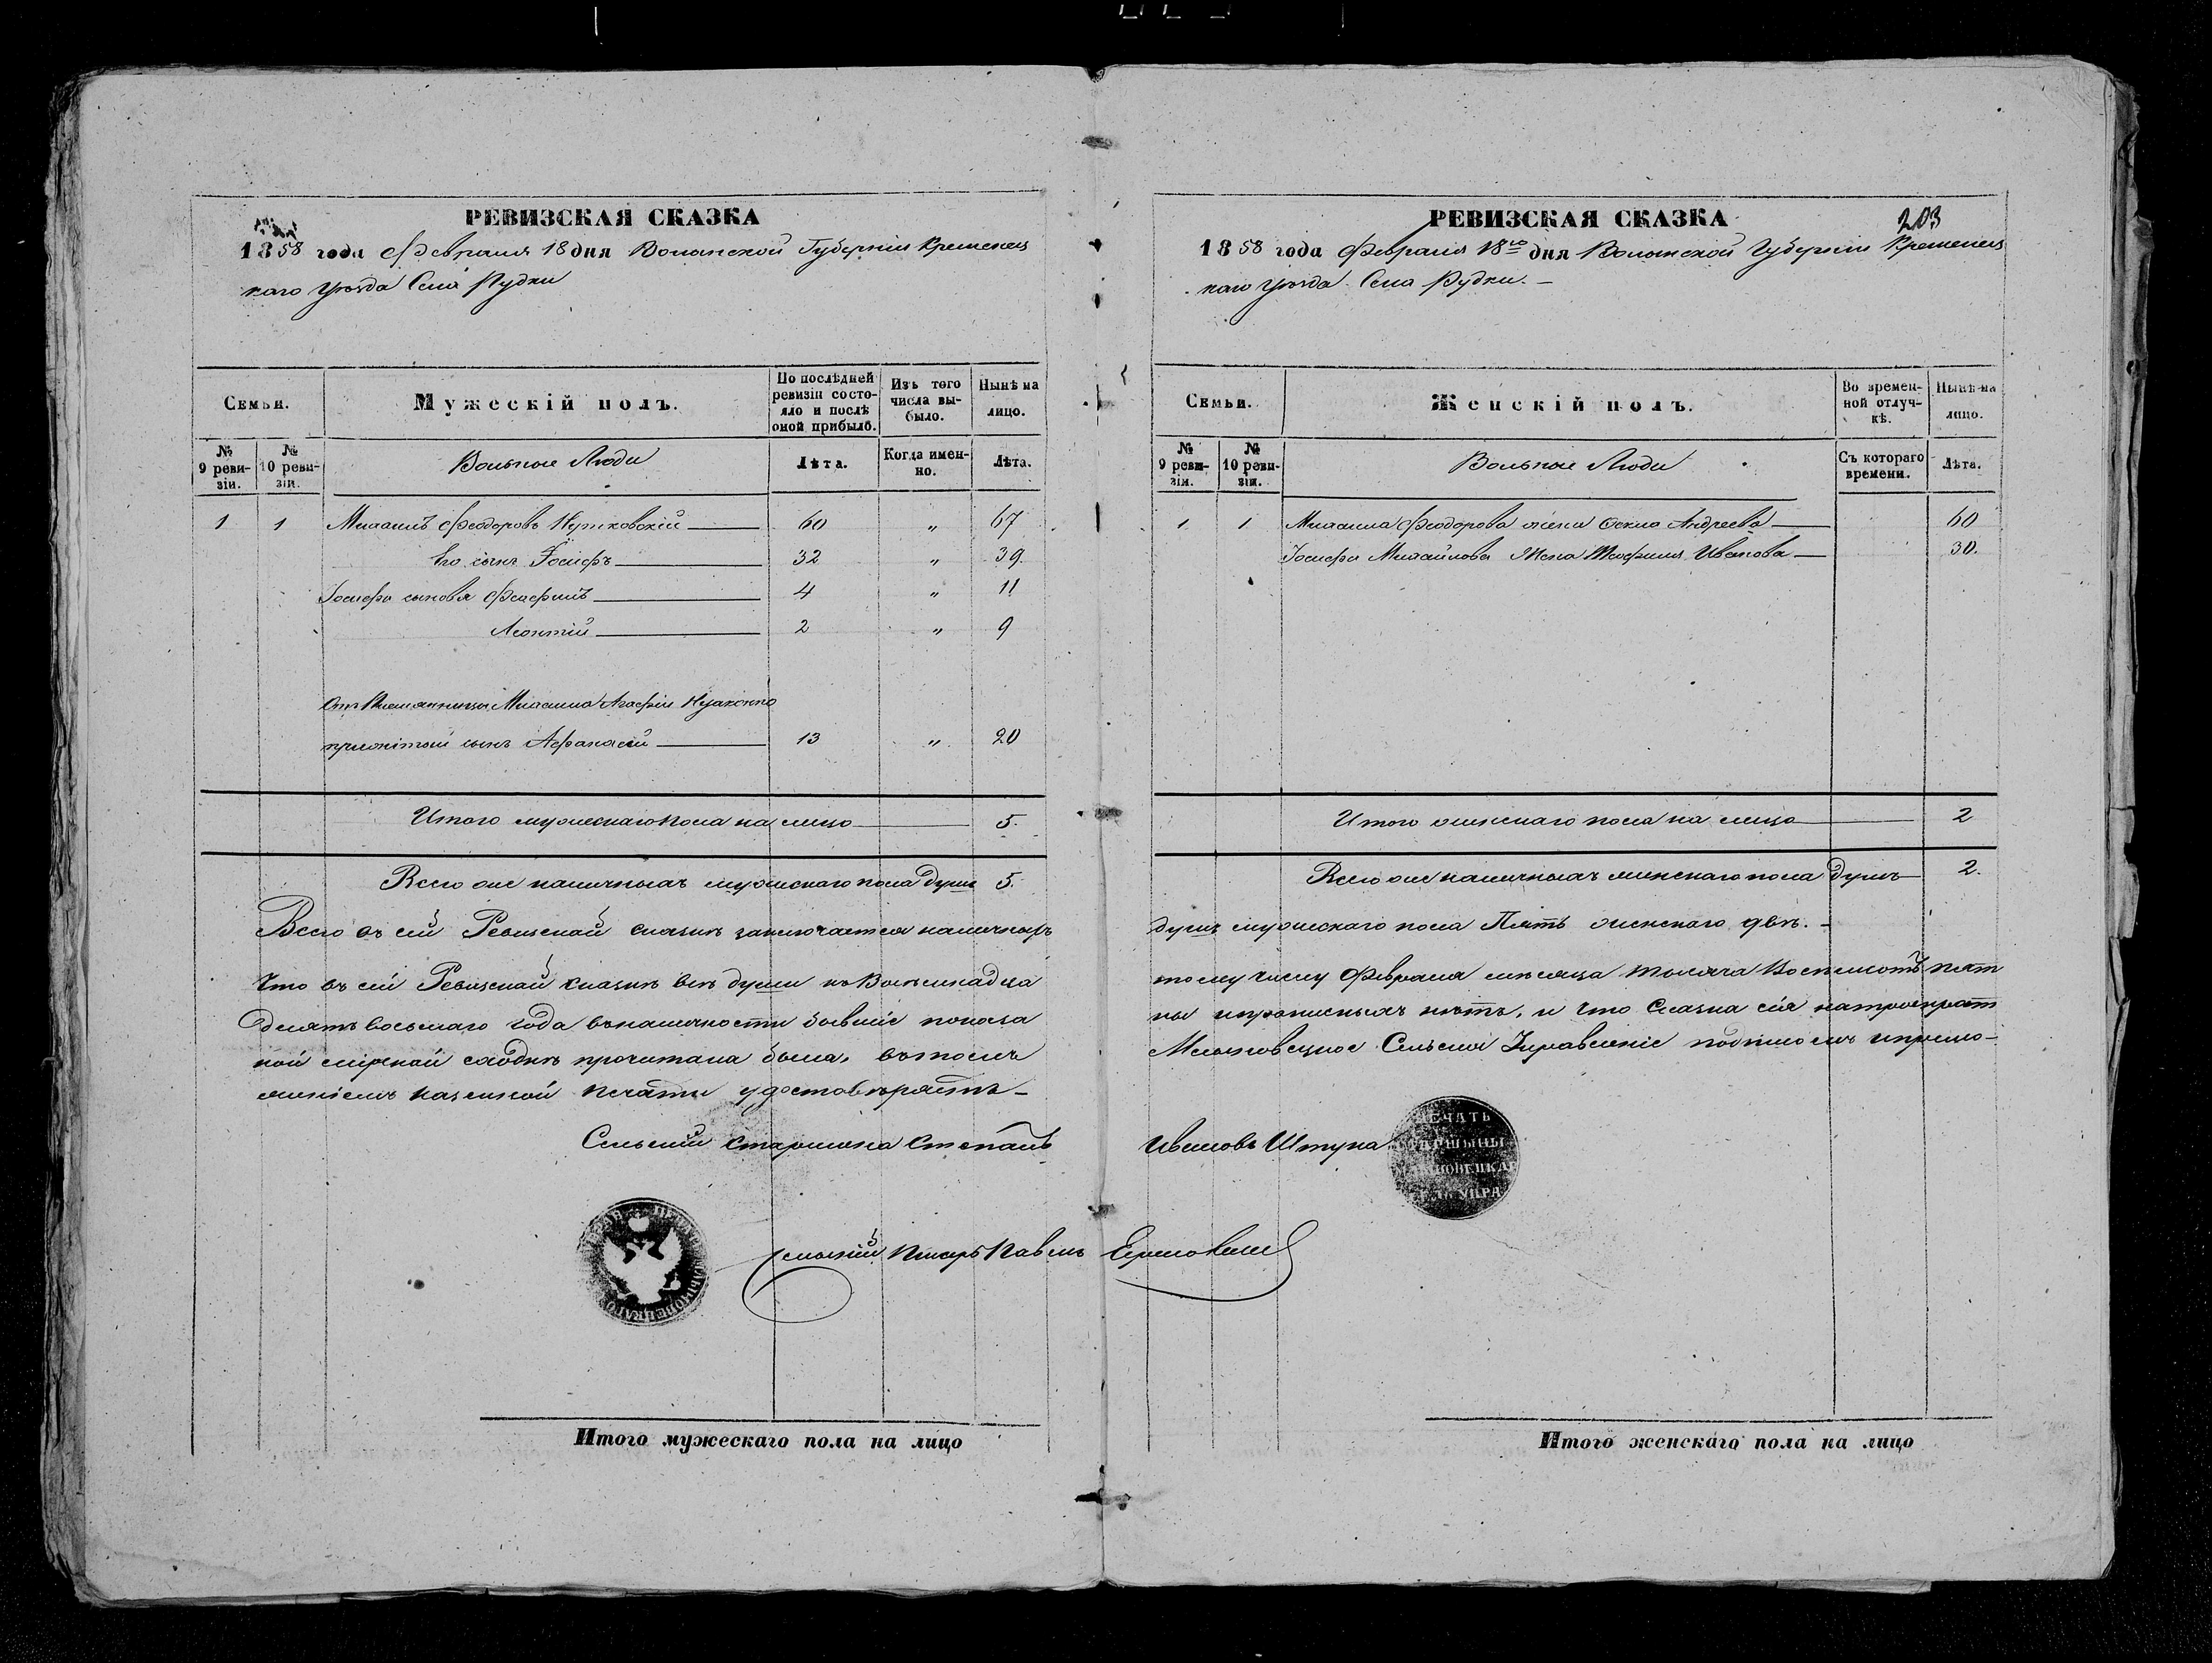 РЕВИЗСКАЯ СКАЗКА
1858 года Февраля 18 дня Волынской Губерніи Кременец
каго уѣзда Села Рудки
Семьи.
Мужескій полъ.
По послѣдней ревизіи состояло и послѣ оной прибыло.
Изъ того числа выбыло.
Нынѣ на лицо.
№ 9 ревизіи.
№ 10 ревизіи.
Вольные Люди
Лѣта.
Когда именно.
Лѣта.
1 1 Михаилъ Феодоровъ 60 „ 67
Его сынъ Іосифъ 32 „ 39
Іосифа сыновья Феофилъ 4 „ 11
Леонтій 2 „ 9
Отъ племянницы Михаила Агафіи Незаконно
прижитый сынъ Афанасій 13 „ 20
Итого мужескаго пола на лицо 5.
Всего же наличныхъ мужескаго пола душъ 5.
Всего въ сей Ревизской сказкѣ заключается наличныхъ
Что въ сей Ревизской сказкѣ всѣ души къ Восемнадца
десятъ восьмаго года въ наличности бывшіе показа
ной мірской сходкѣ прочитана была, въ томъ
женіемъ казенной печати удостовѣряетъ
Сельскій старшина Степанъ
Сельскій Писарь Павелъ
Итого мужескаго пола на лицо
РЕВИЗСКАЯ СКАЗКА
203
1858 года Февраля 18го дня Волынской Губерніи Кременец
каго уѣзда Села Рудки.
Семьи.
Женскій полъ.
Во временной отлучкѣ.
Нынѣ на лицо.
№ 9 ревизіи.
№ 10 ревизіи.
Вольные Люди
Съ котораго времени.
Лѣта.
1 1 Михаила Феодорова жена Андреева 60
Іосифа Михайлова Жена Теофила Иванова 30.
Итого женскаго пола на лицо 2
Всего же наличныхъ женскаго пола душъ 2.
душъ мужескаго пола Пять женскаго двѣ.
тому числу Февраля мѣсяца тысяча Восемьсотъ пят
ны и прописныхъ нѣтъ, и что Сказка сія на
Сельское Управленіе подписомъ и прило-
Ивановъ Штука
ПЕЧАТЬ
Итого женскаго пола на лицо